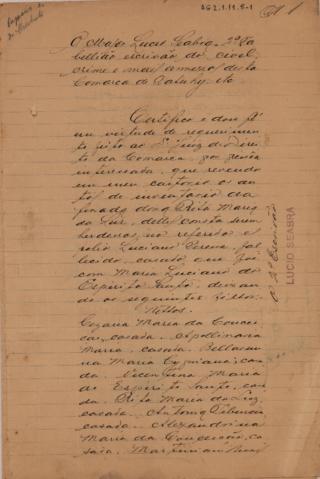 AG2.1.11.5-1
O Major Lucio Seabra, 2º Ta
bellião escrivão do civel,
crime e mais annexos desta
Comarca de Catuhy etc
Certifico e dou fé
em virtude de requerimen
to feito ao Sr. Juiz de Direi
to da Comarca por pessôa
interessada, que revendo
em meu cartorio os au
tos de inventario da
finada dona Rita Maria
da Luz, delles consta
herdeiros, no referido
Luciano Pereira, fal
lecido, casado que foi
com Maria Luciana do
Espirito Santo, deixan
do os seguintes filhos:
Netos.
Cezaria Maria da Concei
ção, casada. Apollinaria
Maria, casada. Bellarmi
na Maria Cypriana, casa
da. Vicentina Maria
do Espirito Santo, casa
da. Rita Maria da Luz,
casada. Antonio
casado. Alexandrina
Maria da Conceição, ca
sada.
O 2º Escrivão
LUCIO SEABRA